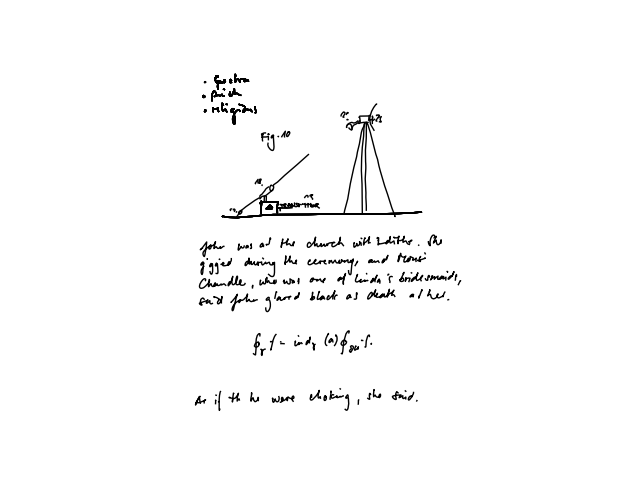 • 
• 
• religious
Fig. 10
TRANSMITTER
John was at the church with Edithe. She
gigged during the ceremony, and Mous
Chandle, who was one of Linda's bridesmaids,
said John glared black as death at her.
∮γ f = indγ (a) ∮ f.
As if th he were choking, she said.